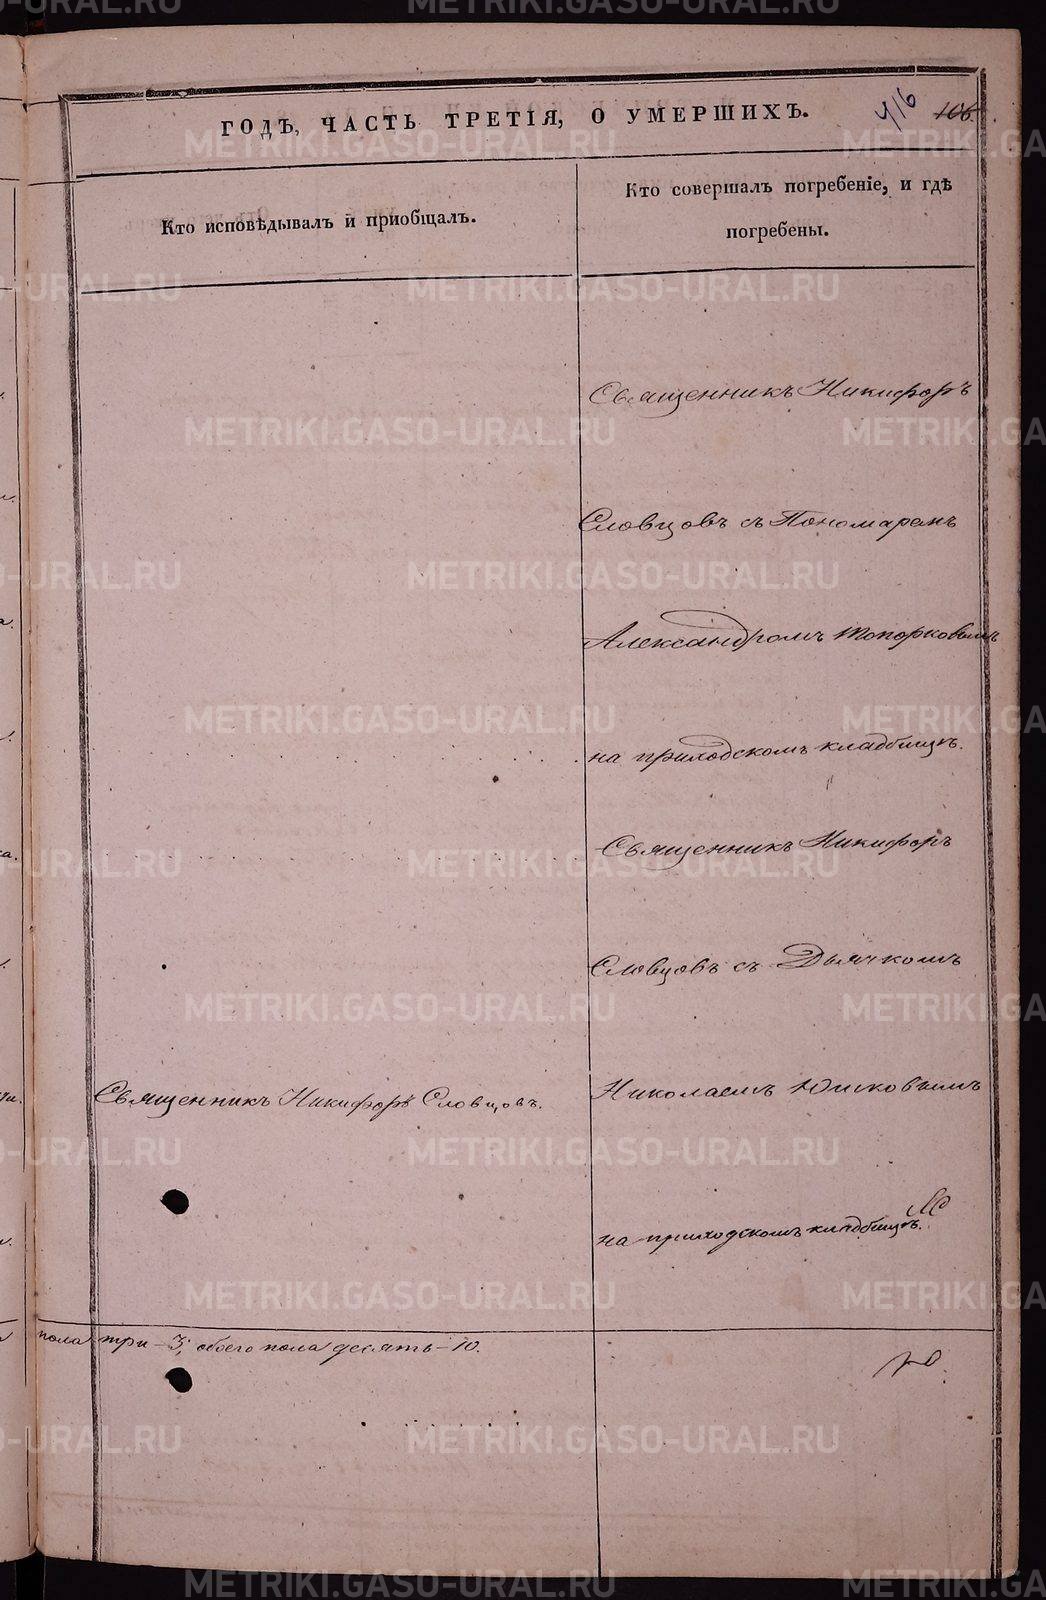 ГОДЪ, ЧАСТЬ ТРЕТІЯ, О УМЕРШИХЪ.
416 106.
Кто исповѣдывалъ и пріобщалъ.
Кто совершалъ погребеніе, и гдѣ
погребены.
Священникъ Никифоръ
Словцовъ съ Пономаремъ
Александромъ Топорковымъ
на приходскомъ кладбищѣ.
Священникъ Никифоръ
Словцовъ съ Дьячкомъ
Священникъ Никифоръ Словцовъ.
Николаемъ Юшковымъ
на приходскомъ кладбищѣ.
пола три – 3; обоего пола десять – 10.
METRIKI.GASO-URAL.RU